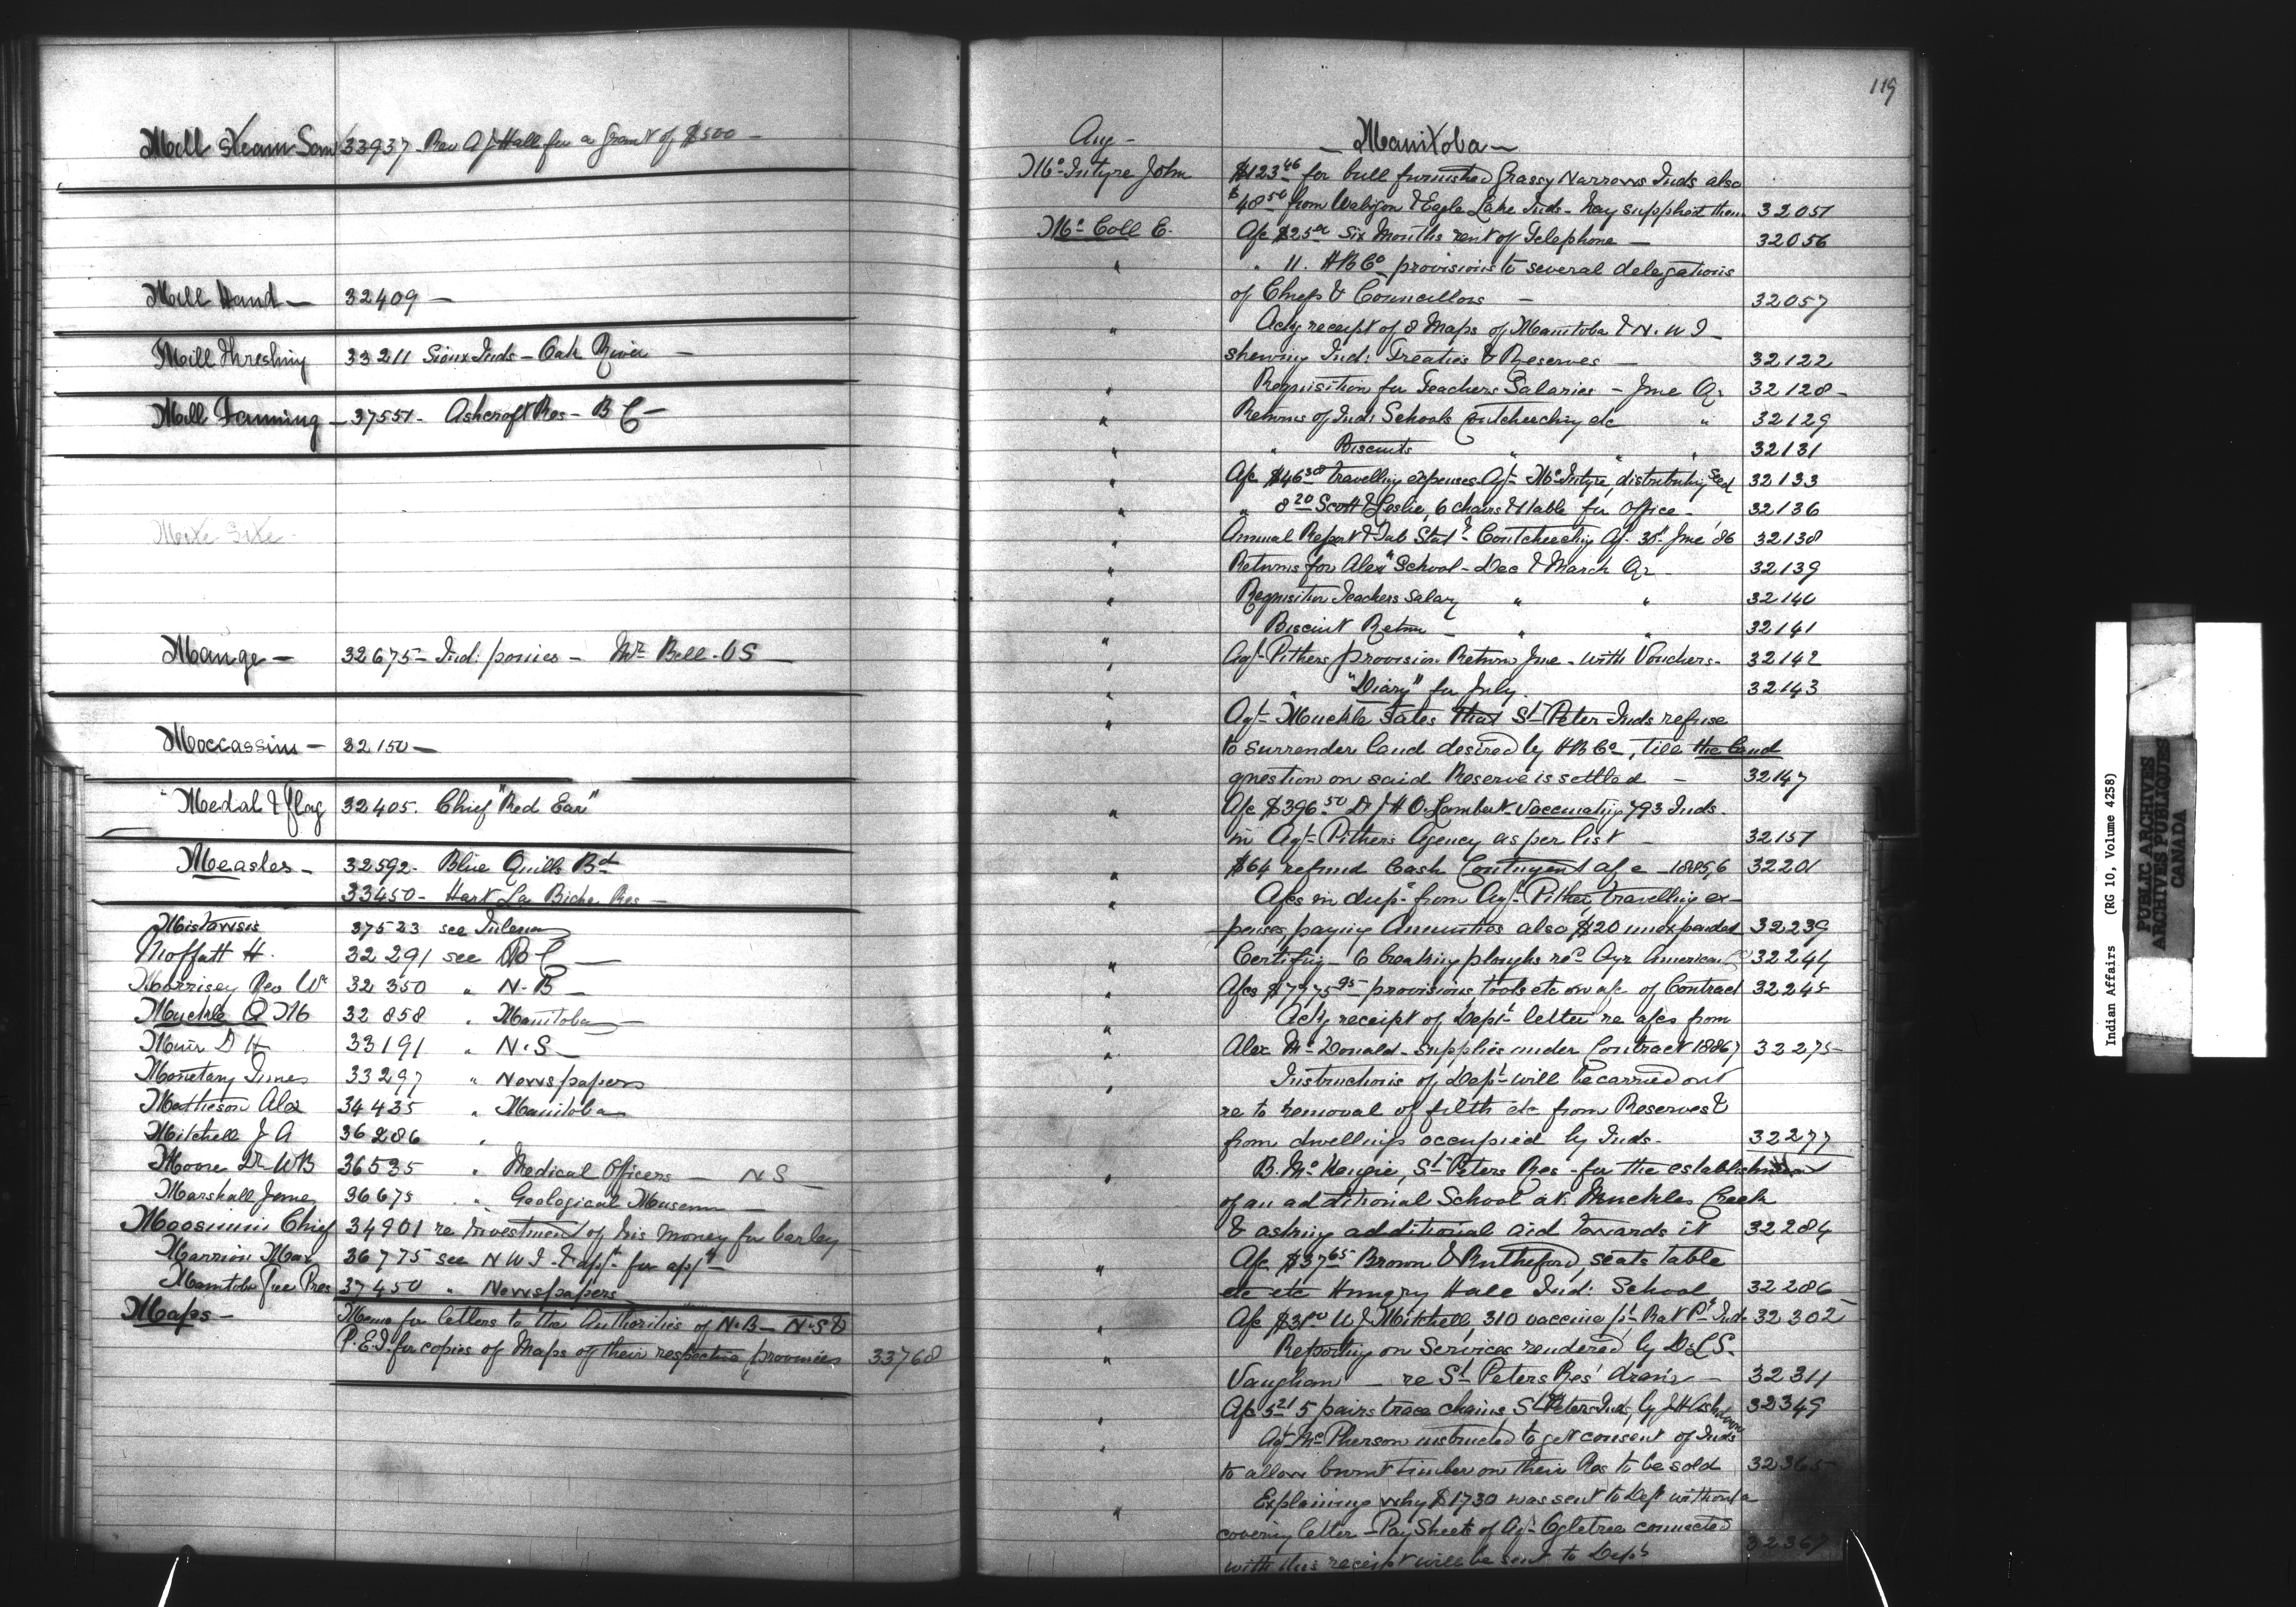 Mill Steam Saw 33937 - Rev A J Hall for a Grant of $500 -
Mill Hand - 32409 -
Mill Threshing 33211 Sioux Inds - Oak River -
Mill Fanning - 37551 - Ashcroft Res - B C -
Mange - 32675 - Ind: ponies - Mr Bell - OS
Moccassins - 32150 -
"Medal & flag 32405. Chief "Red Ear"
Measles - 32592 - Blue Quills Bd
33450 - Hart La Biche Res -
Mistawsis 37523 see
Moffatt H. 32291 see B C -
Morrisey Rev Wm 32350 " N. B -
Muckle Q M 32858 " Manitoba -
Muir D H 33191 " N. S -
Monetary Times 33297 " Newspapers
Matheson Alex 34435 " Manitoba
Mitchell J A 36286 "
Moore Dr WB 36535 " Medical Officers - N S -
Marshall 36675 " Geological Museum -
Moosimin Chief 34901 re Investment of his money for barley -
Marrion Max 36775 see N W T
Manitoba Free Pres 37450 " Newspapers
Maps - Memo for letters to the Authorities of N. B - N. S &
P. E. I. for copies of Maps of their respective provinces 33768
119
Aug - - Manitoba -
McIntyre John $123 46 for bull furnished Grassy Narrows Inds also
$48 50 from Wabigon & Eagle Lake Inds - hay supplied them 32051
McColl E. A/c $25 00 Six Months rent of Telephone - 32056
" " 11. H B Co provisions to several delegations
of Chiefs & Councillors - 32057
" Ackg receipt of 8 Maps of Manitoba & N. W T -
shewing Ind: Treaties & Reserves - 32122
" Requisition for Teachers Salaries - June Qr 32128 -
" Returns of Ind: Schools Coutcheeching etc " 32129
" " Biscuits " " " 32131
" A/c $46 38 travelling expenses Agt McIntyre, distributing seed 32133
" " 8 20 Scott & Leslie, 6 chairs & 1 table for office - 32136
" Annual Report & Tab Stat Coutcheeching Ag. 30 June '86 32138
" Returns for Alex School - Dec & March Qr - 32139
" Requisition Teachers Salary " " 32140
" Biscuit Return - " " 32141
" Agt Pithers provision Return June - with Vouchers - 32142
" " "Diary" for July. 32143
" Agt Muckle states that St Peter Inds refuse
to surrender land desired by H B Co, till the land
question on said Reserve is settled - 32147
" A/c $396 50 Dr J H O Lambert - Vaccinating 793 Inds.
in Agt Pither's Agency as per list - 32151
" $64 refund Cash Contingent a/c - 1885/6 32201
" A/cs in dup from Agt Pither, travelling ex-
-penses, paying Annuities also $20 unexpended 32239
" Certifg - 6 breaking ploughs recd Ayr American Co 32244
" A/cs $7775 95 - provisions, tools etc on a/c of Contract 32245
" Ackg receipt of Dept letter re a/cs from
" Alex McDonald - supplies under Contract 1886/7 32275
" Instructions of Dept will be carried out
re to removal of filth etc from Reserves &
from dwellings occupied by Inds - 32277
" B. McKenzie, St Peters Res - for the establishment
of an additional School at Muckles Creek
& asking additional aid towards it 32284
" A/c $37 65 Brown & Rutherford, seats table
etc etc Hungry Hall Ind: School 32286
" A/c $31 00 W J Mitchell, 310 vaccine pts Rat Pt Inds 32302
" Reporting on Services rendered by D L S.
Vaughan - re St Peters Res' drains - 32311
" A/c 5 21 5 pairs trace chains, St Peters Inds, by J H Ashdown 32349
" Agt McPherson instructed to get consent of Inds
to allow burnt timber on their Res to be sold 32365
" Explaining why $1730 was sent to Dept without a
covering letter - Pay Sheets of Agt Ogletree connected
with this receipt will be sent to Dept 32367
Indian Affairs (RG 10, Volume 4258)
PUBLIC ARCHIVES
ARCHIVES PUBLIQUES
CANADA